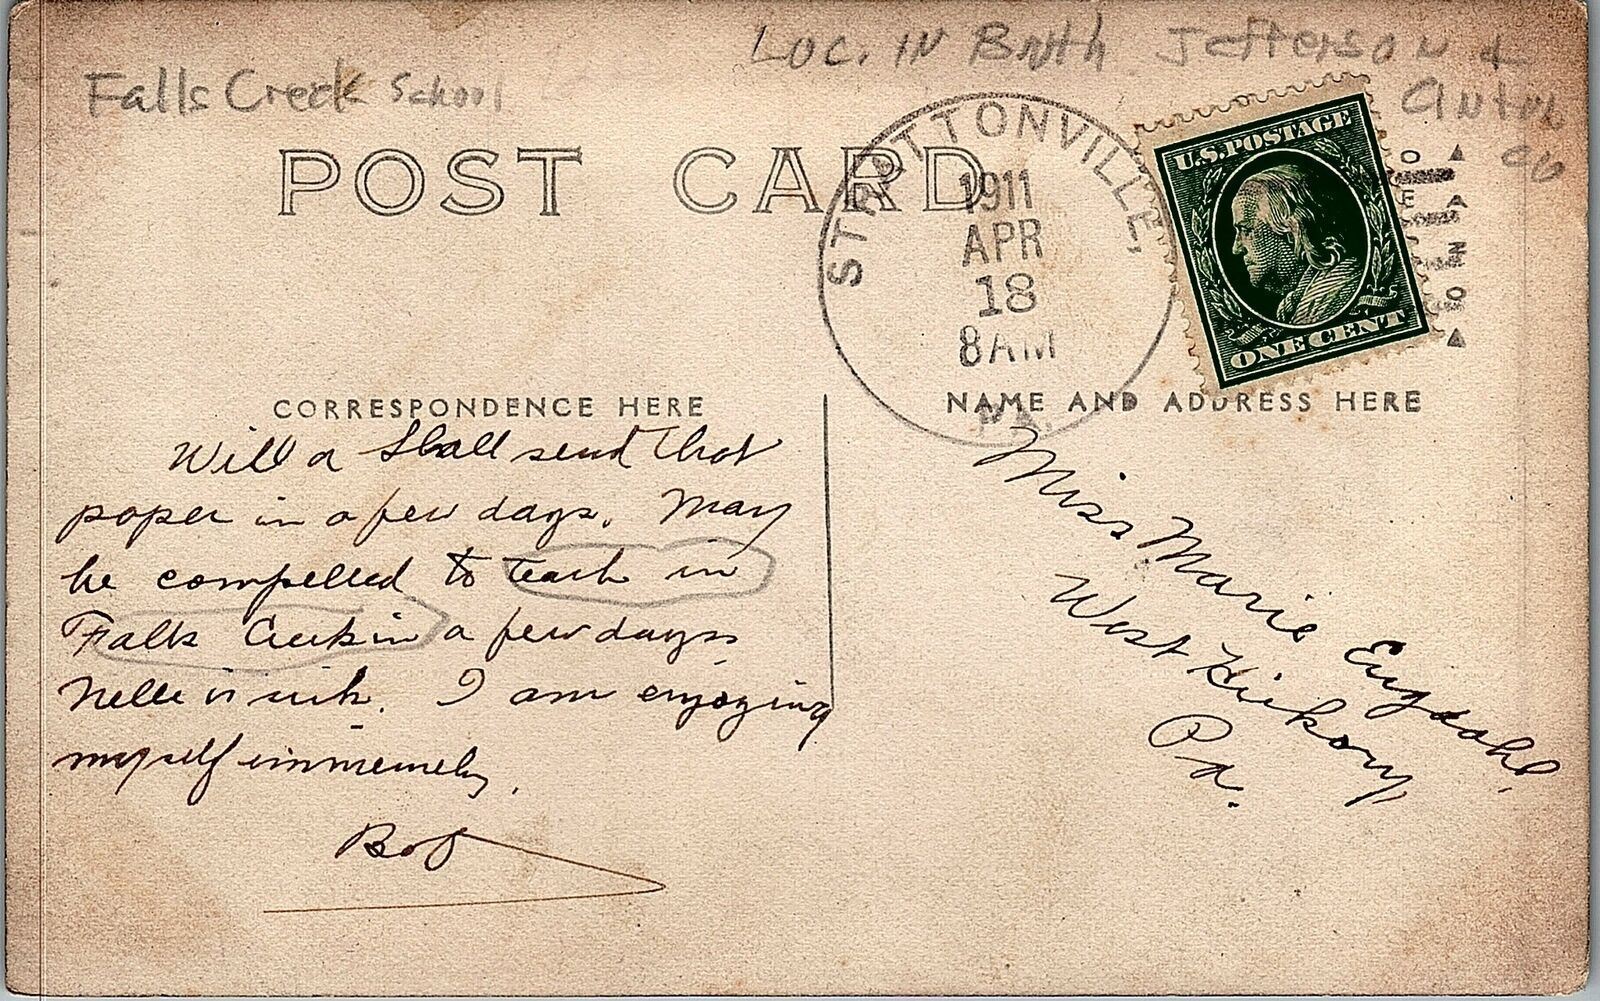 Falls Creek School
Loc. in Both Jefferson &
co
POST CARD
STRATTONVILLE,
1911
APR
18
8 AM
PA.
U.S. POSTAGE
ONE CENT
CORRESPONDENCE HERE
NAME AND ADDRESS HERE
Will a Shall send that
paper in a few days. May
be compelled to teach in
Falls Creek in a few days
Nelle is sick. I am enjoying
myself immensely.
Bob
Miss Marie Engdahl,
West Hickory,
Pa.